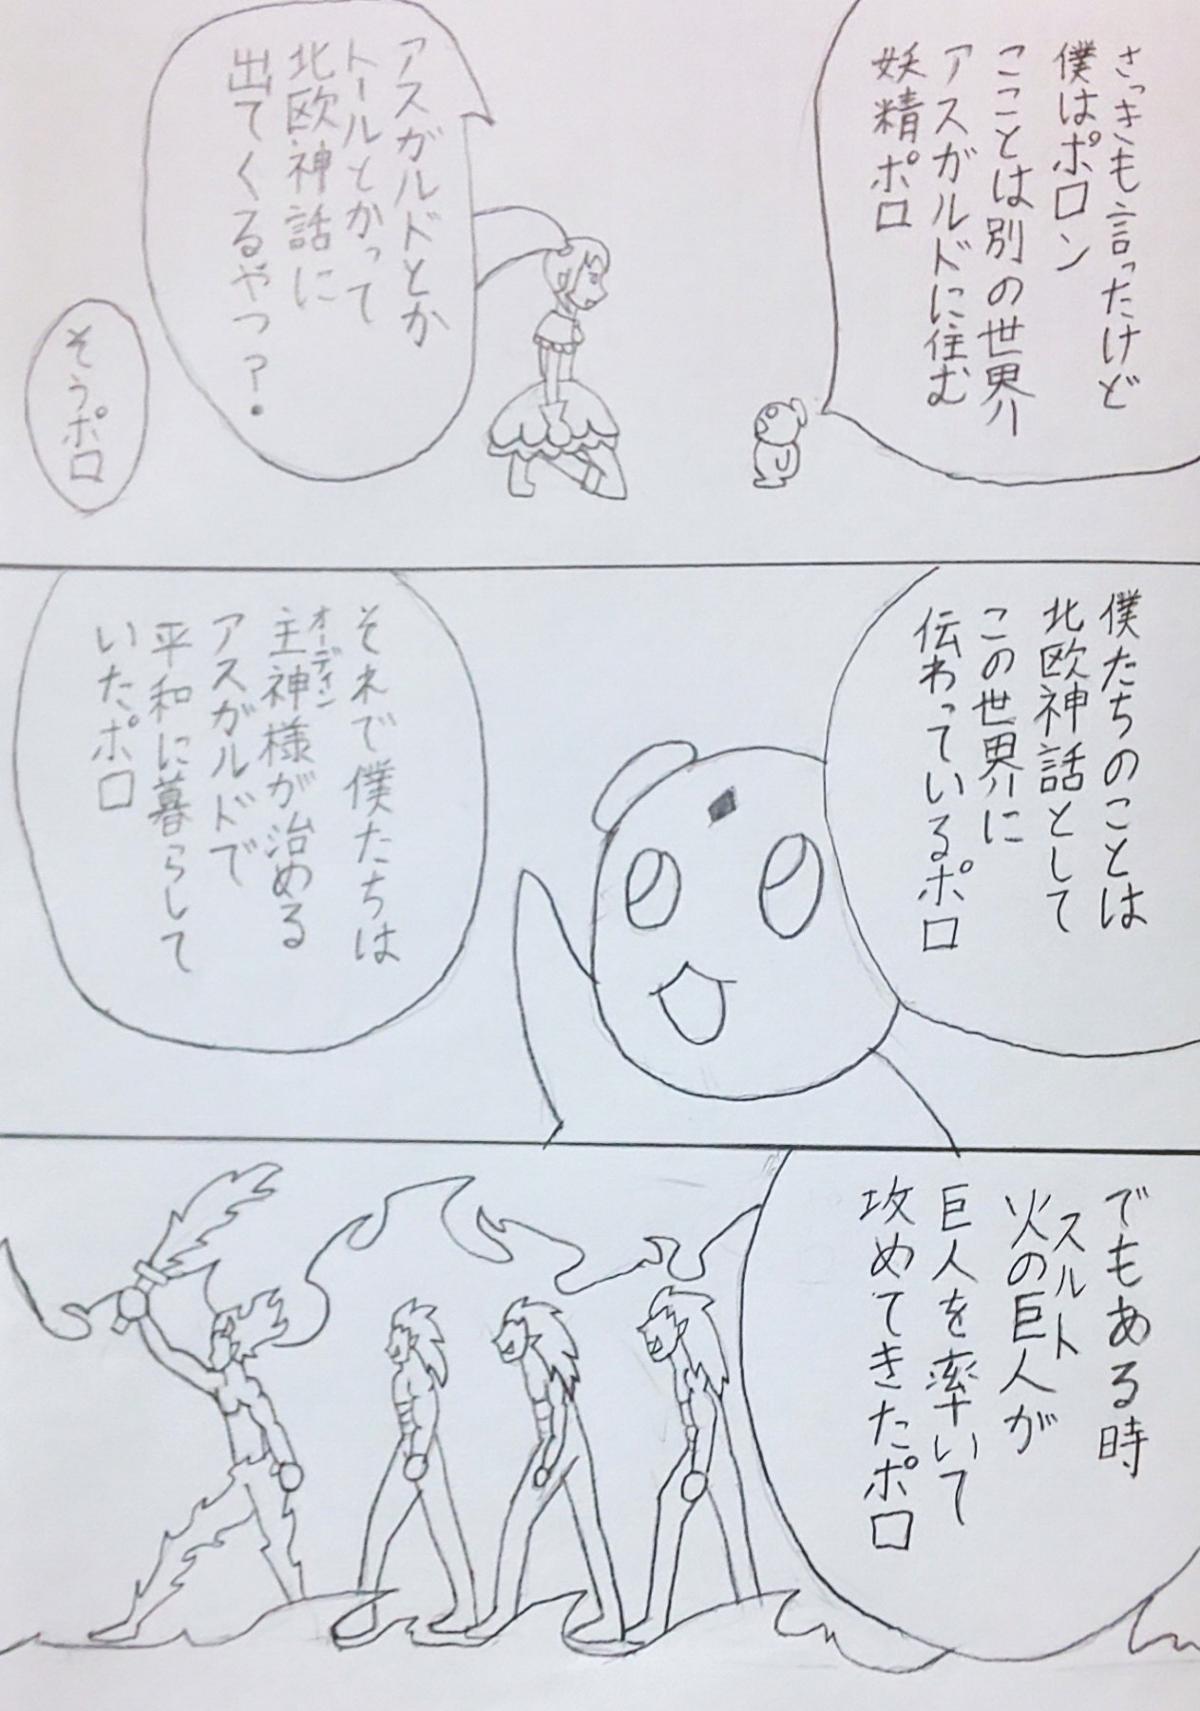 さっきも言ったけど
僕はポロン
こことは別の世界
アスガルドに住む
妖精ポロ
アスガルドとか
トールとかって
北欧神話に
出てくるやつ？
そうポロ
僕たちのことは
北欧神話として
この世界に
伝わっているポロ
それで僕たちは
オーディン
主神様が治める
アスガルドで
平和に暮らして
いたポロ
でもある時
スルト
火の巨人が
巨人を率いて
攻めてきたポロ